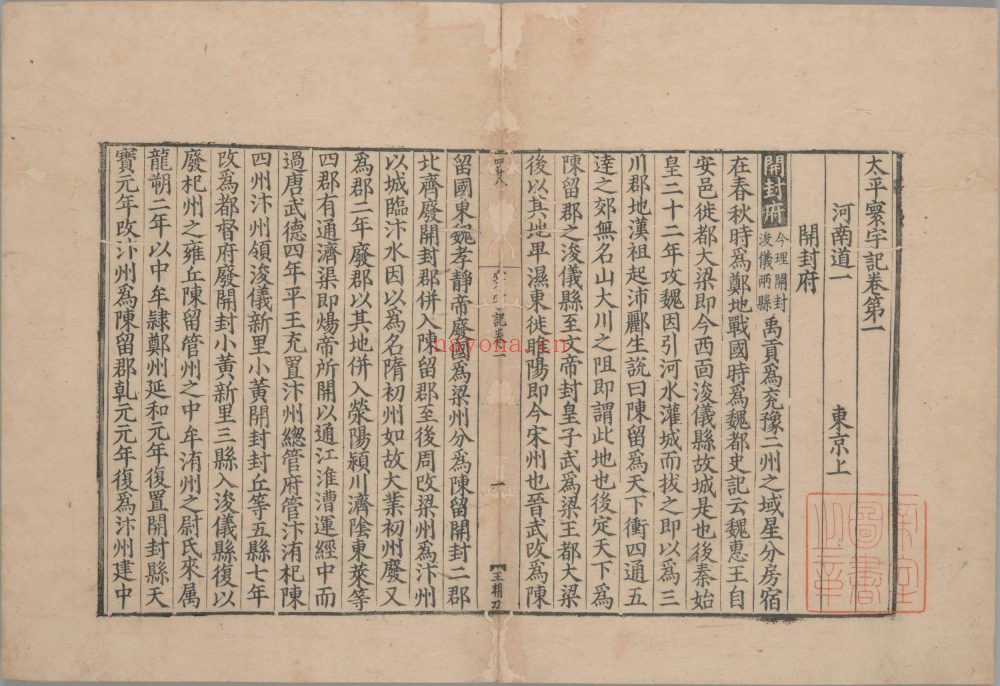 太平寰宇記卷第一
河南道一 東京上
開封府
開封府 今理開封浚儀兩縣 禹貢為兖豫二州之域星分房宿
在春秋時為鄭地戰國時為魏都史記云魏惠王自
安邑徙都大梁即今西面浚儀縣故城是也後秦始
皇二十二年攻魏因引河水灌城而拔之即以為三
川郡地漢祖起沛酈生説曰陳留為天下衝四通五
逹之郊無名山大川之阻即謂此地也後定天下為
陳留郡之浚儀縣至文帝封皇子武為梁王都大梁
後以其地卑濕東徙睢陽即今宋州也晉武改為陳
記卷一
一
王朝刀
留國東魏孝靜帝廢國為梁州分為陳留開封二郡
北齊廢開封郡併入陳留郡至後周改梁州為汴州
以城臨汴水因以為名隋初州如故大業初州廢又
為郡二年廢郡以其地併入滎陽潁川濟陰東萊等
四郡有通濟渠即煬帝所開以通江淮漕運經中而
過唐武德四年平王充置汴州總管府管汴洧杞陳
四州汴州領浚儀新里小黄開封封丘等五縣七年
改為都督府廢開封小黄新里三縣入浚儀縣復以
廢杞州之雍丘陳留管州之中牟洧州之尉氏來属
龍朔二年以中牟隷鄭州延和元年復置開封縣天
寳元年改汴州為陳留郡乹元元年復為汴州建中
nayona.cn